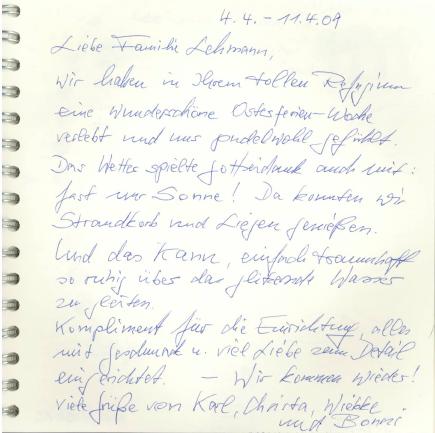 4.4. – 11.4.09
Liebe Familie Lehmann,
wir haben in Ihrem tollen Refugium
eine wunderschöne Osterferien-Woche
verlebt und uns pudelwohl gefühlt.
Das Wetter spielte Gottseidank auch mit:
fast nur Sonne! Da konnten wir
Strandkorb und Liegen genießen.
Und das Kanu, einfach traumhaft
so ruhig über das glitzernde Wasser
zu gleiten.
Kompliment für die Einrichtung, alles
mit Geschmack u. viel Liebe zum Detail
eingerichtet. – Wir kommen wieder!
Viele Grüße von Karl, Christa, Wiebke
und